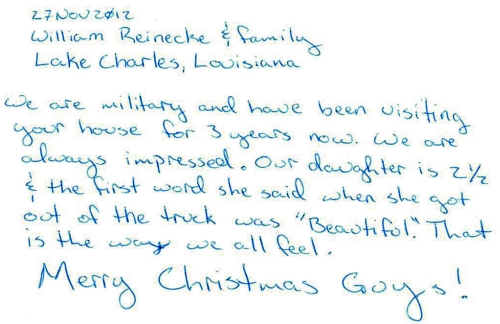 27NOV2012
William Reinecke & family
Lake Charles, Louisiana
We are military and have been visiting
your house for 3 years now. We are
always impressed. Our daughter is 2 1/2
& the first word she said when she got
out of the truck was "Beautiful". That
is the way we all feel.
Merry Christmas Guys!